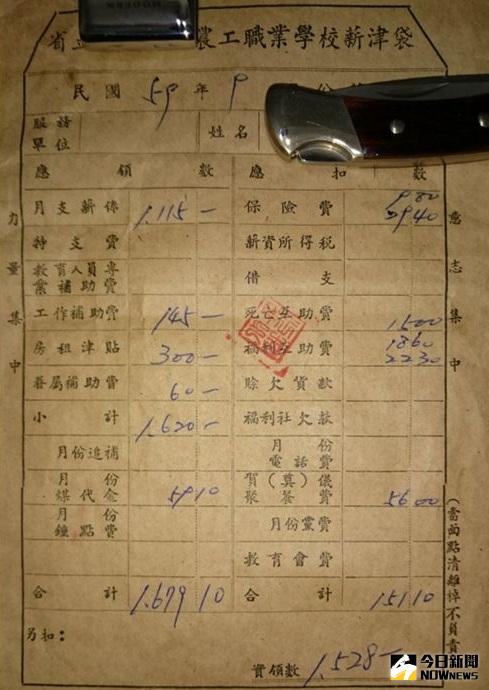 MODERN
省立 農工職業學校薪津袋
民國 59 年 9
服務單位 姓名
應領數 應扣數
月支薪俸 1.115— 保險費 980 2940
特支費 薪資所得稅
教育人員專業補助費 借支
工作補助費 145— 死亡互助費 1500
房租津貼 300— 福利互助費 1860 2230
眷屬補助費 60— 賒欠貨款
小計 1.620— 福利社欠款
月份追補 月份電話費
月份煤代金 5910 賀(奠)儀聚餐費 5600
月份鐘點費 月份黨費
教育會費
合計 1.679 10 合計 151.10
另扣：
實領數 1.528—
力量集中
意志集中
(當面點清離悼不負責
今日新聞
NOWnews